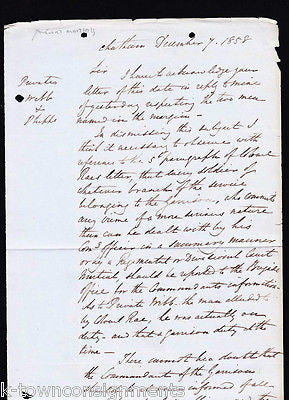 Chatham December 7. 1858
Privates
Webb
&
Phipps
Sir
I have to acknowledge your
letter of this date in reply to mine
of yesterday respecting the two men
named in the margin –
In dismissing this subject I
think it necessary to observe with
reference to the 5th paragraph of Colonel
Raes letter, that every soldier of
whatever branch of the service
belonging to the Garrison, who commits
any crime of a more serious nature
than can be dealt with by his
Comg officer in a summary manner
or by a Regimental or Divisional Court
Martial, should be reported to the Brigade
office for the Commandants information.
As to Private Webb, the man alluded to
by Colonel Rae, he was actually on
duty – and that a garrison duty at the
time –
There cannot be a doubt that
the Commandant of the Garrison
informed of all
k-townconsignments